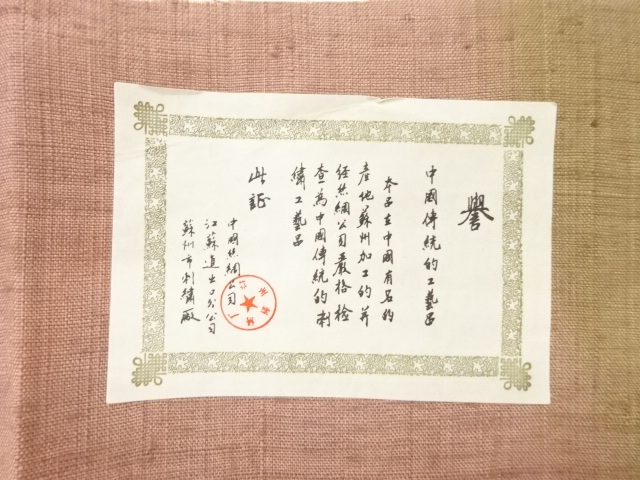 譽
中國傳統的工藝品
本品在中國有名的
產地蘇州加工的并
经絲綢公司嚴格检
查為中國傳統的刺
繡工藝品
此証
中國絲綢公司
江蘇進出口分公司
蘇州市刺繡廠